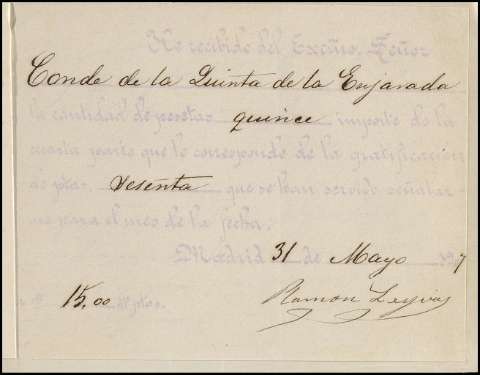 He recibido del Excmo. Señor
Conde de la Quinta de la Enjarada
la cantidad de pesetas quince importe de la
cuarta parte que le corresponde de la gratificación
de ptas. sesenta que se han servido señalar-
me para el mes de la fecha.
Madrid 31 de Mayo 7
15,00 ptas.
Ramon